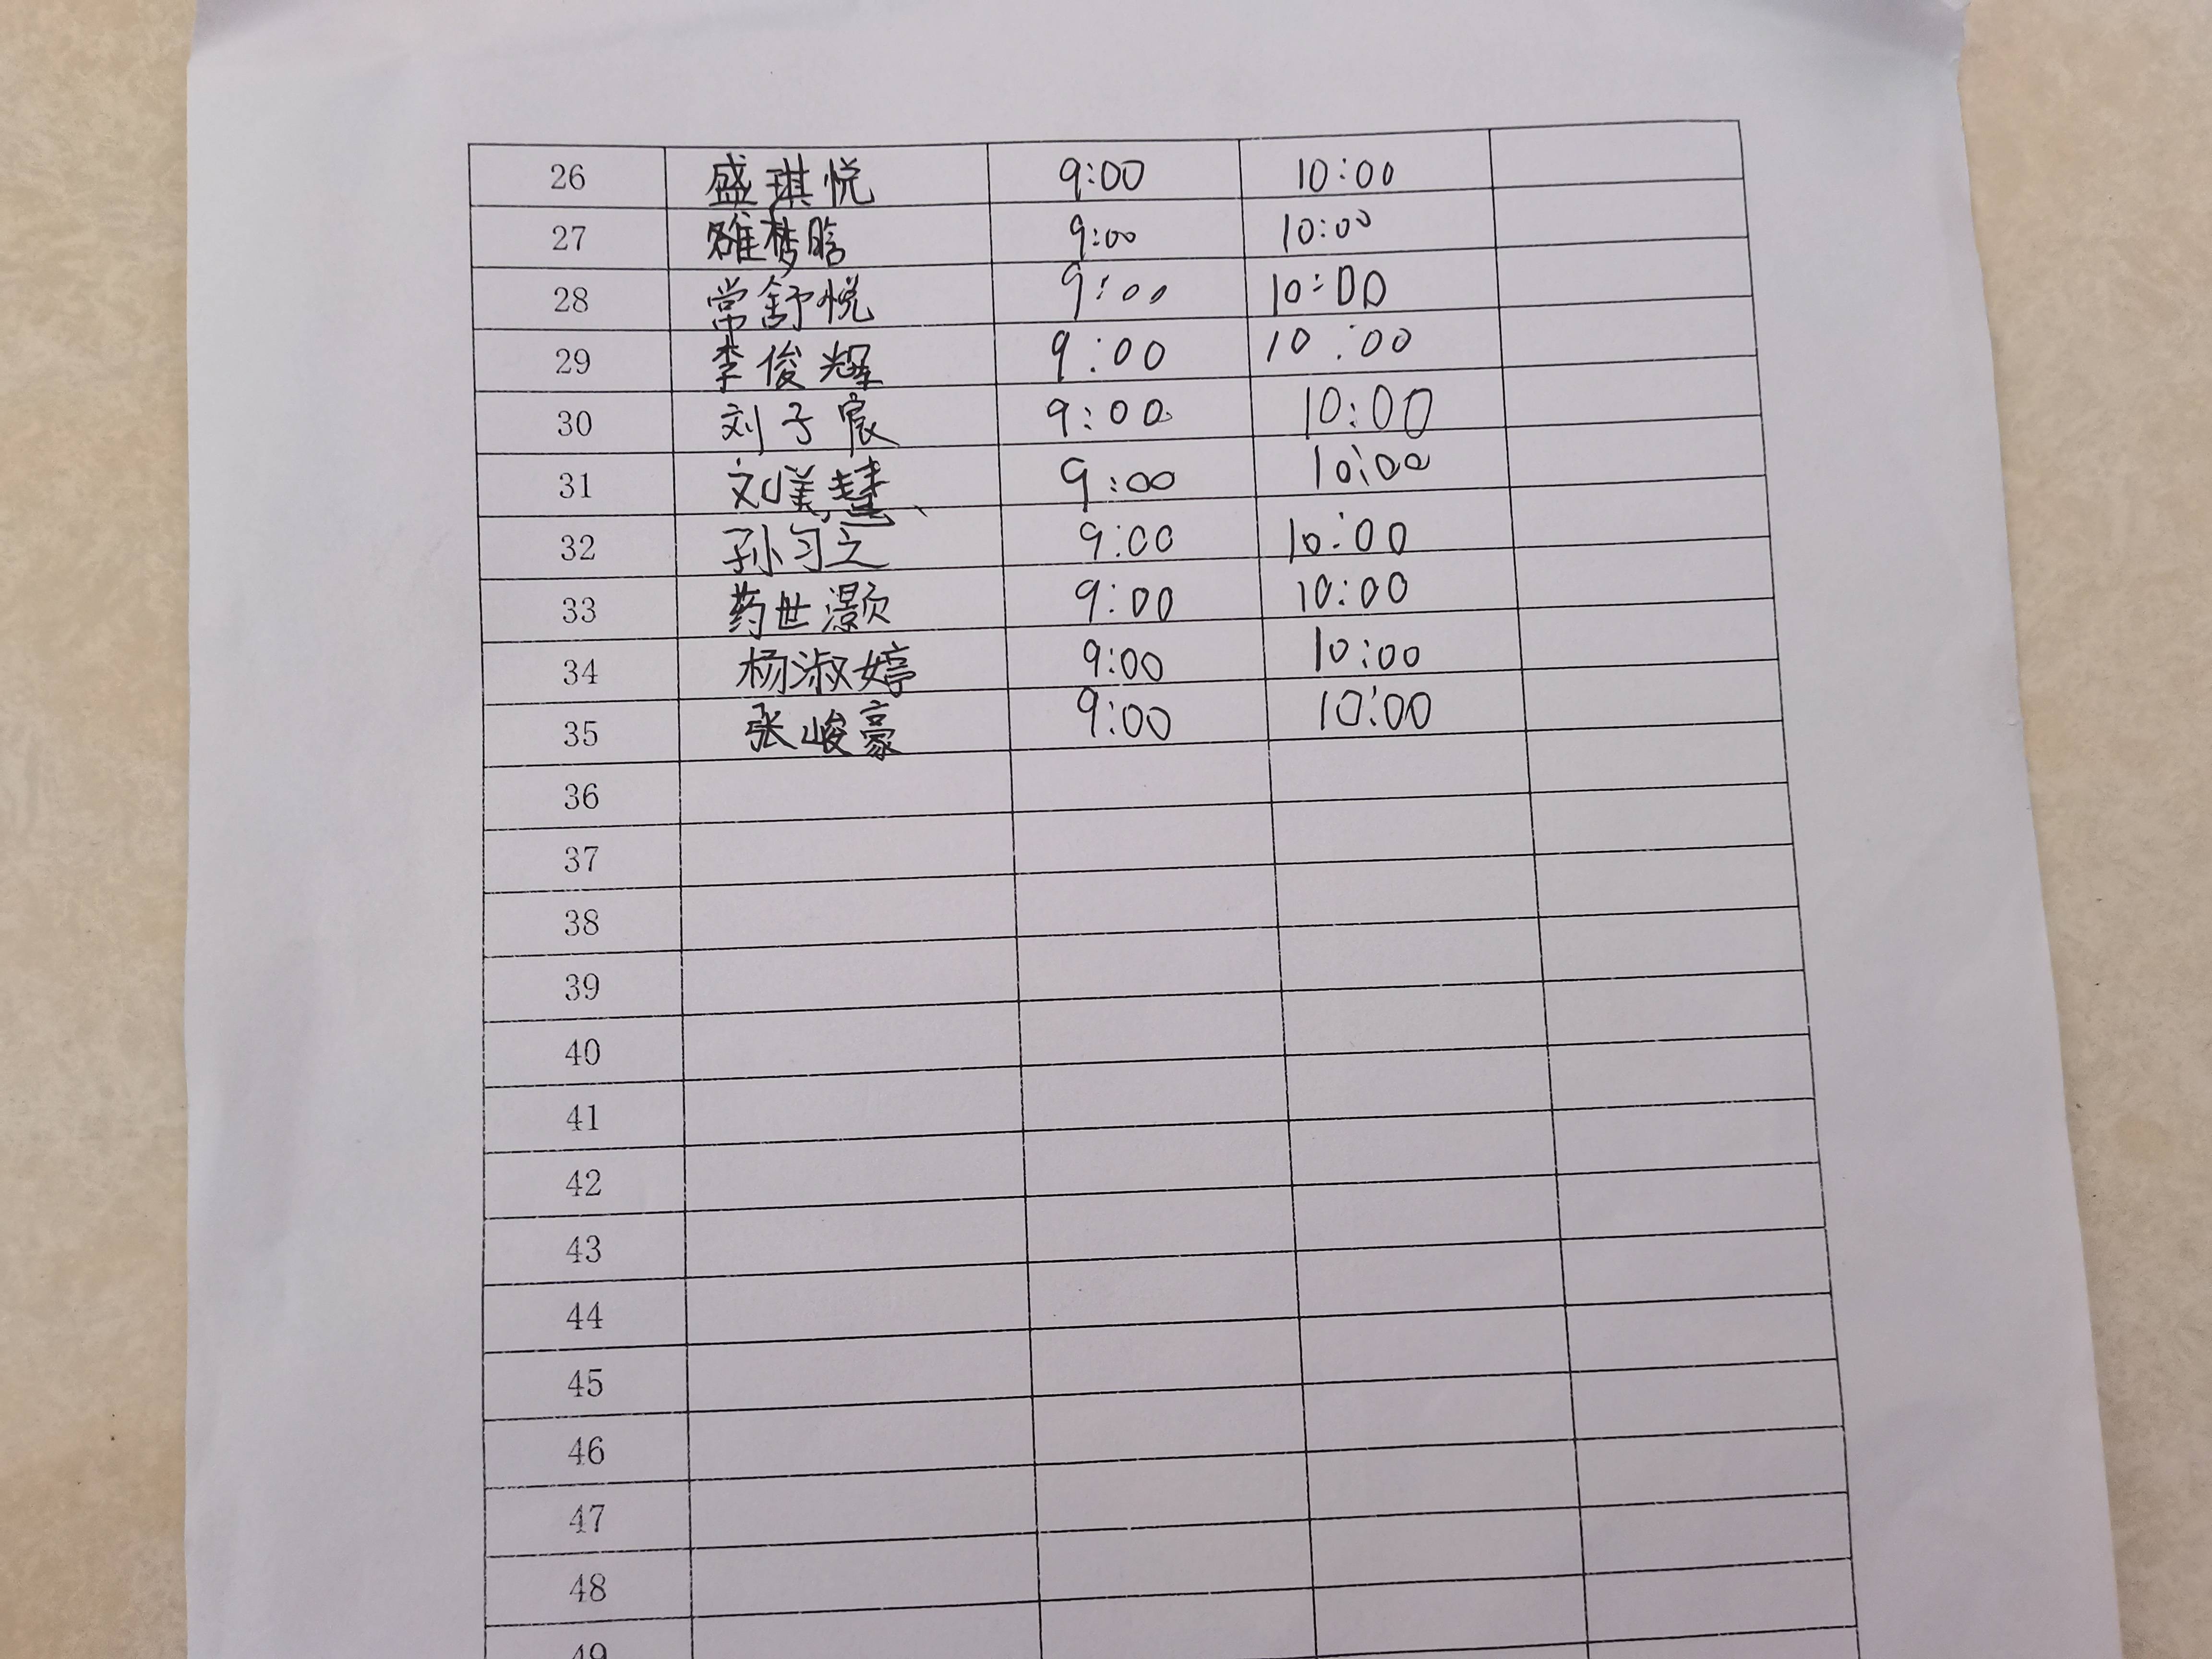 26 盛琪悦 9:00 10:00
27 雒梦晗 9:00 10:00
28 常舒悦 9:00 10:00
29 李俊辉 9:00 10:00
30 刘子宸 9:00 10:00
31 刘美慧 9:00 10:00
32 孙习之 9:00 10:00
33 药世灏 9:00 10:00
34 杨淑婷 9:00 10:00
35 张峻豪 9:00 10:00
36
37
38
39
40
41
42
43
44
45
46
47
48
49